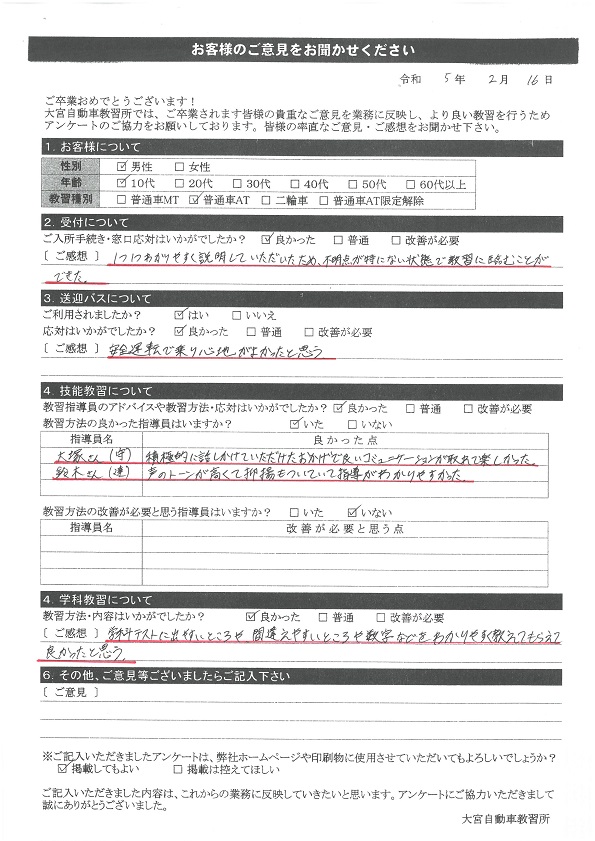 お客様のご意見をお聞かせください
令和 5年 2月 16日
ご卒業おめでとうございます!
大宮自動車教習所では、ご卒業されます皆様の貴重なご意見を業務に反映し、より良い教習を行うため
アンケートのご協力をお願いしております。皆様の率直なご意見・ご感想をお聞かせ下さい。
1. お客様について
性別 ☑男性 □女性
年齢 ☑10代 □20代 □30代 □40代 □50代 □60代以上
教習種別 □普通車MT ☑普通車AT □二輪車 □普通車AT限定解除
2. 受付について
ご入所手続き・窓口応対はいかがでしたか? ☑良かった □普通 □改善が必要
〔 ご感想 〕 1つ1つわかりやすく説明していただいたため、不明点が特にない状態で教習に臨むことが
できた。
3. 送迎バスについて
ご利用されましたか? ☑はい □いいえ
応対はいかがでしたか? ☑良かった □普通 □改善が必要
〔 ご感想 〕 安全運転で乗り心地がよかったと思う
4. 技能教習について
教習指導員のアドバイスや教習方法・応対はいかがでしたか? ☑良かった □普通 □改善が必要
教習方法の良かった指導員はいますか? ☑いた □いない
指導員名 良かった点
大塚さん(守) 積極的に話しかけていただけたおかげで良いコミュニケーションが取れて楽しかった。
鈴木さん(達) 声のトーンが高くて抑揚もついていて指導がわかりやすかった。
教習方法の改善が必要と思う指導員はいますか? □いた ☑いない
指導員名 改善が必要と思う点
4. 学科教習について
教習方法・内容はいかがでしたか? ☑良かった □普通 □改善が必要
〔 ご感想 〕 学科テストに出やすいところや間違えやすいところや数字などをわかりやすく教えてもらえて
良かったと思う。
6. その他、ご意見等ございましたらご記入下さい
〔 ご意見 〕
※ご記入いただきましたアンケートは、弊社ホームページや印刷物に使用させていただいてもよろしいでしょうか?
☑掲載してもよい □掲載は控えてほしい
ご記入いただきました内容は、これからの業務に反映していきたいと思います。アンケートにご協力いただきまして
誠にありがとうございました。
大宮自動車教習所